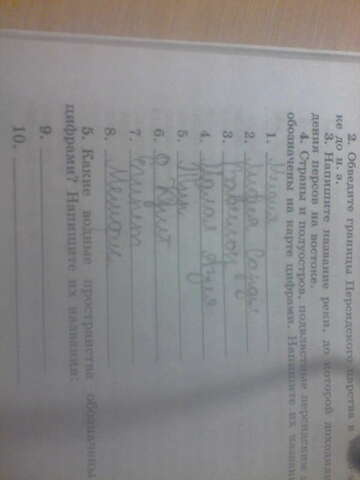 2. Обведите границы Персидского царства в
ке до н. э.
3. Напишите название реки, до которой доходили
дения персов на востоке.
4. Страны и полуостров, подвластные персидским
обозначены на карте цифрами. Напишите их названия
1. Мидия
2. Лидия Сарды
3. Вавилон
4. Малая Азия
5. Тир
6. О Крит
7. Египет
8. Мемфис
5. Какие водные пространства обозначены
цифрами? Напишите их названия:
9.
10.